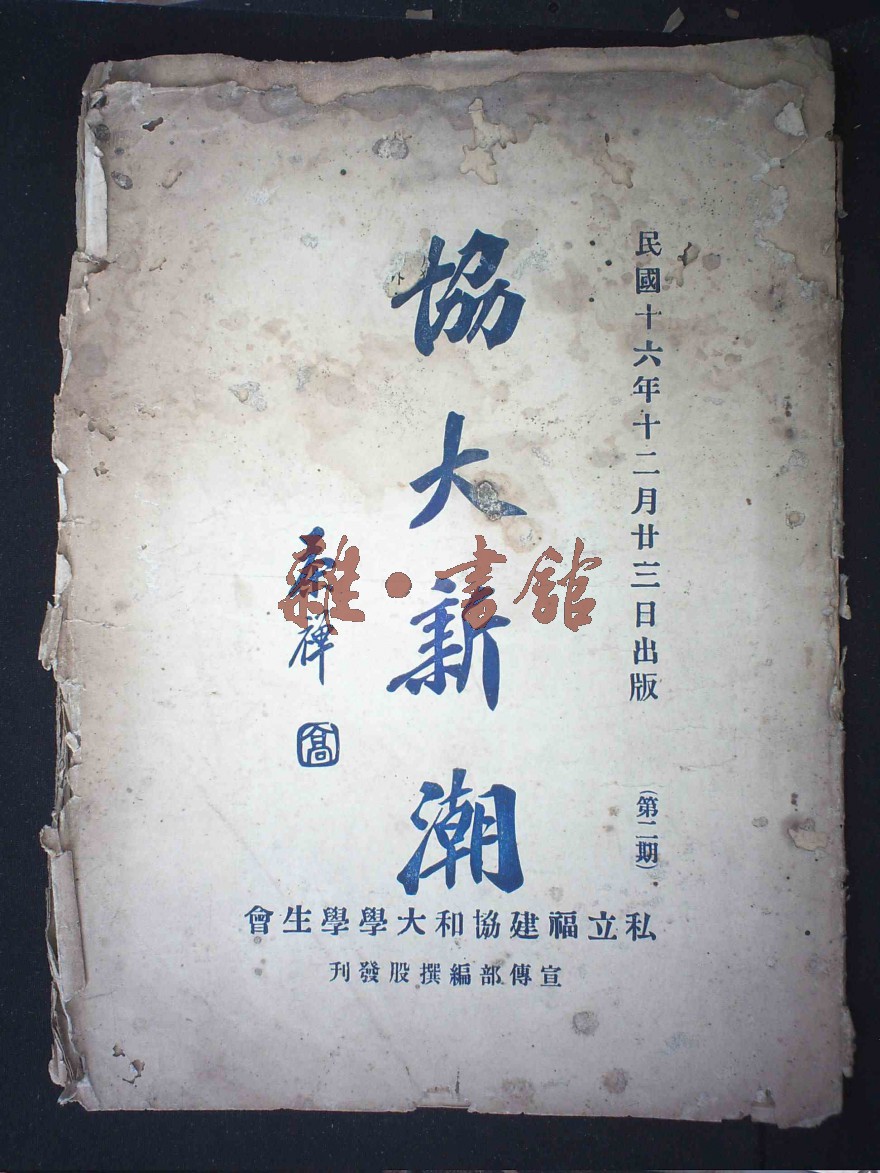 民國十六年十二月廿三日出版
（第二期）
協大新潮
禪
高
私立福建協和大學學生會
宣傳部編撰股發刊
雜·書館